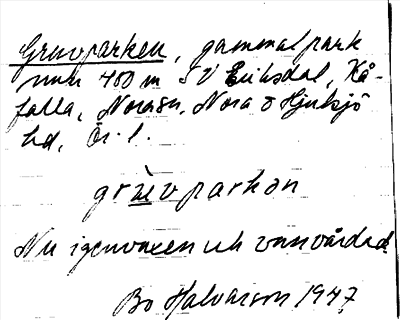 Gruvparken, gammal park
400 m SV Eriksdal, Kå-
falla, Noraån, Nora o Hjulsjö
hd, Ör. l.
grʉvparkən
Nu igenvuxen och vanvårdad
Bo Halvarson 1947